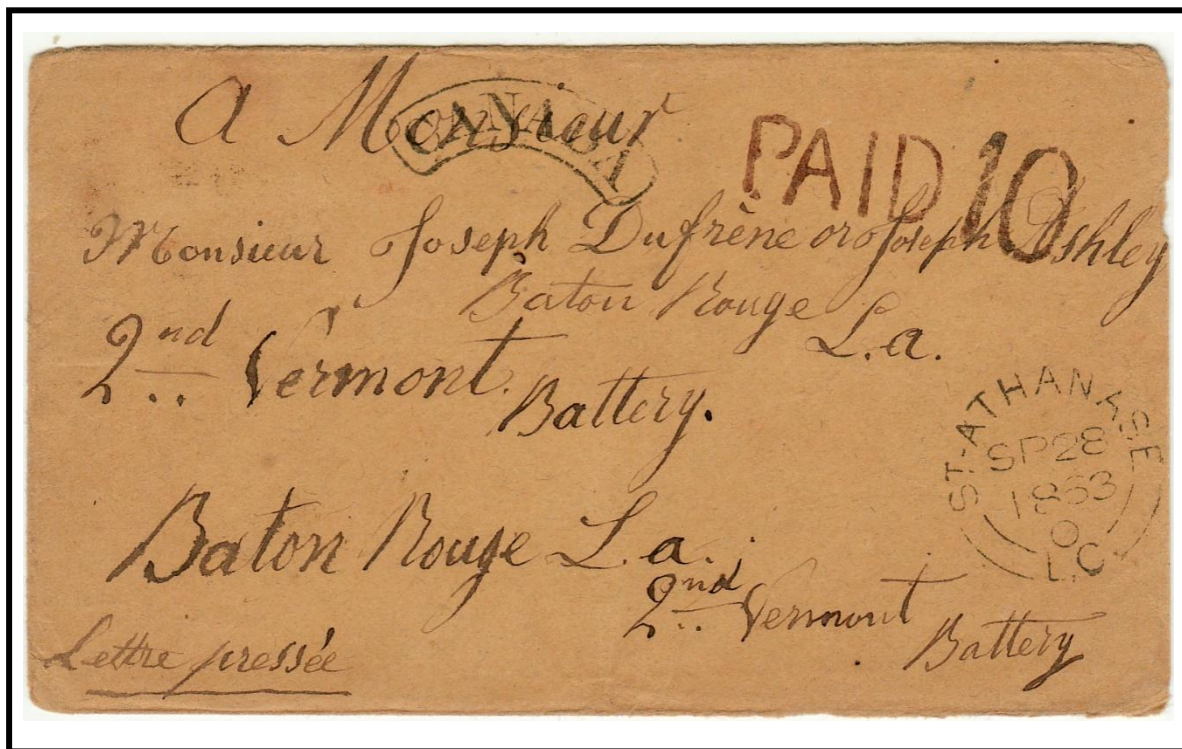 A Monsieur
CANADA
PAID 10
Monsieur Joseph Dufrène or Joseph Ashley
Baton Rouge L.a.
2nd Vermont.
Battery.
ST-ATHANASE
SP 28
1863
L.C
Baton Rouge L.a.
2nd Vermont
Battery
Lettre pressée